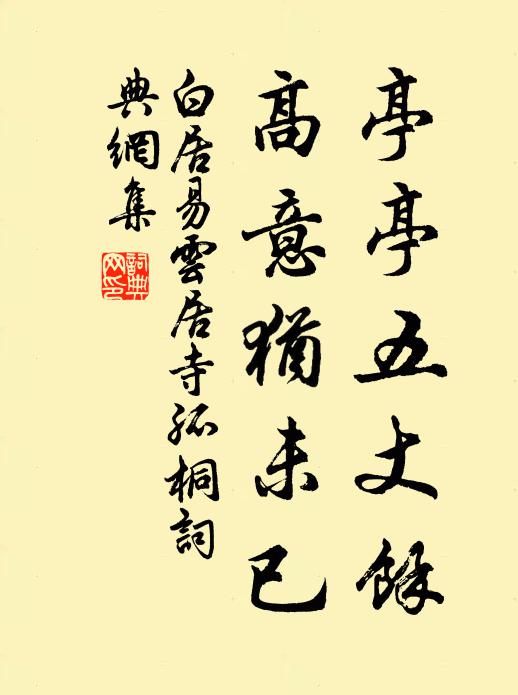 亭亭五丈餘
高意猶未已
白居易雲居寺孤桐詞
典網集
詞典
网印